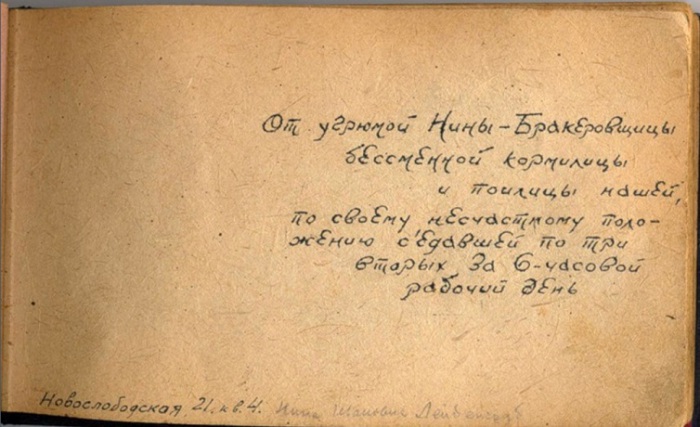 От угрюмой Нины-Бракеровщицы
бессменной кормилицы
и поилицы нашей,
по своему несчастному поло-
жению с'едавшей по три
вторых за 6-часовой
рабочий день
Новослободская 21. кв. 4. Нина